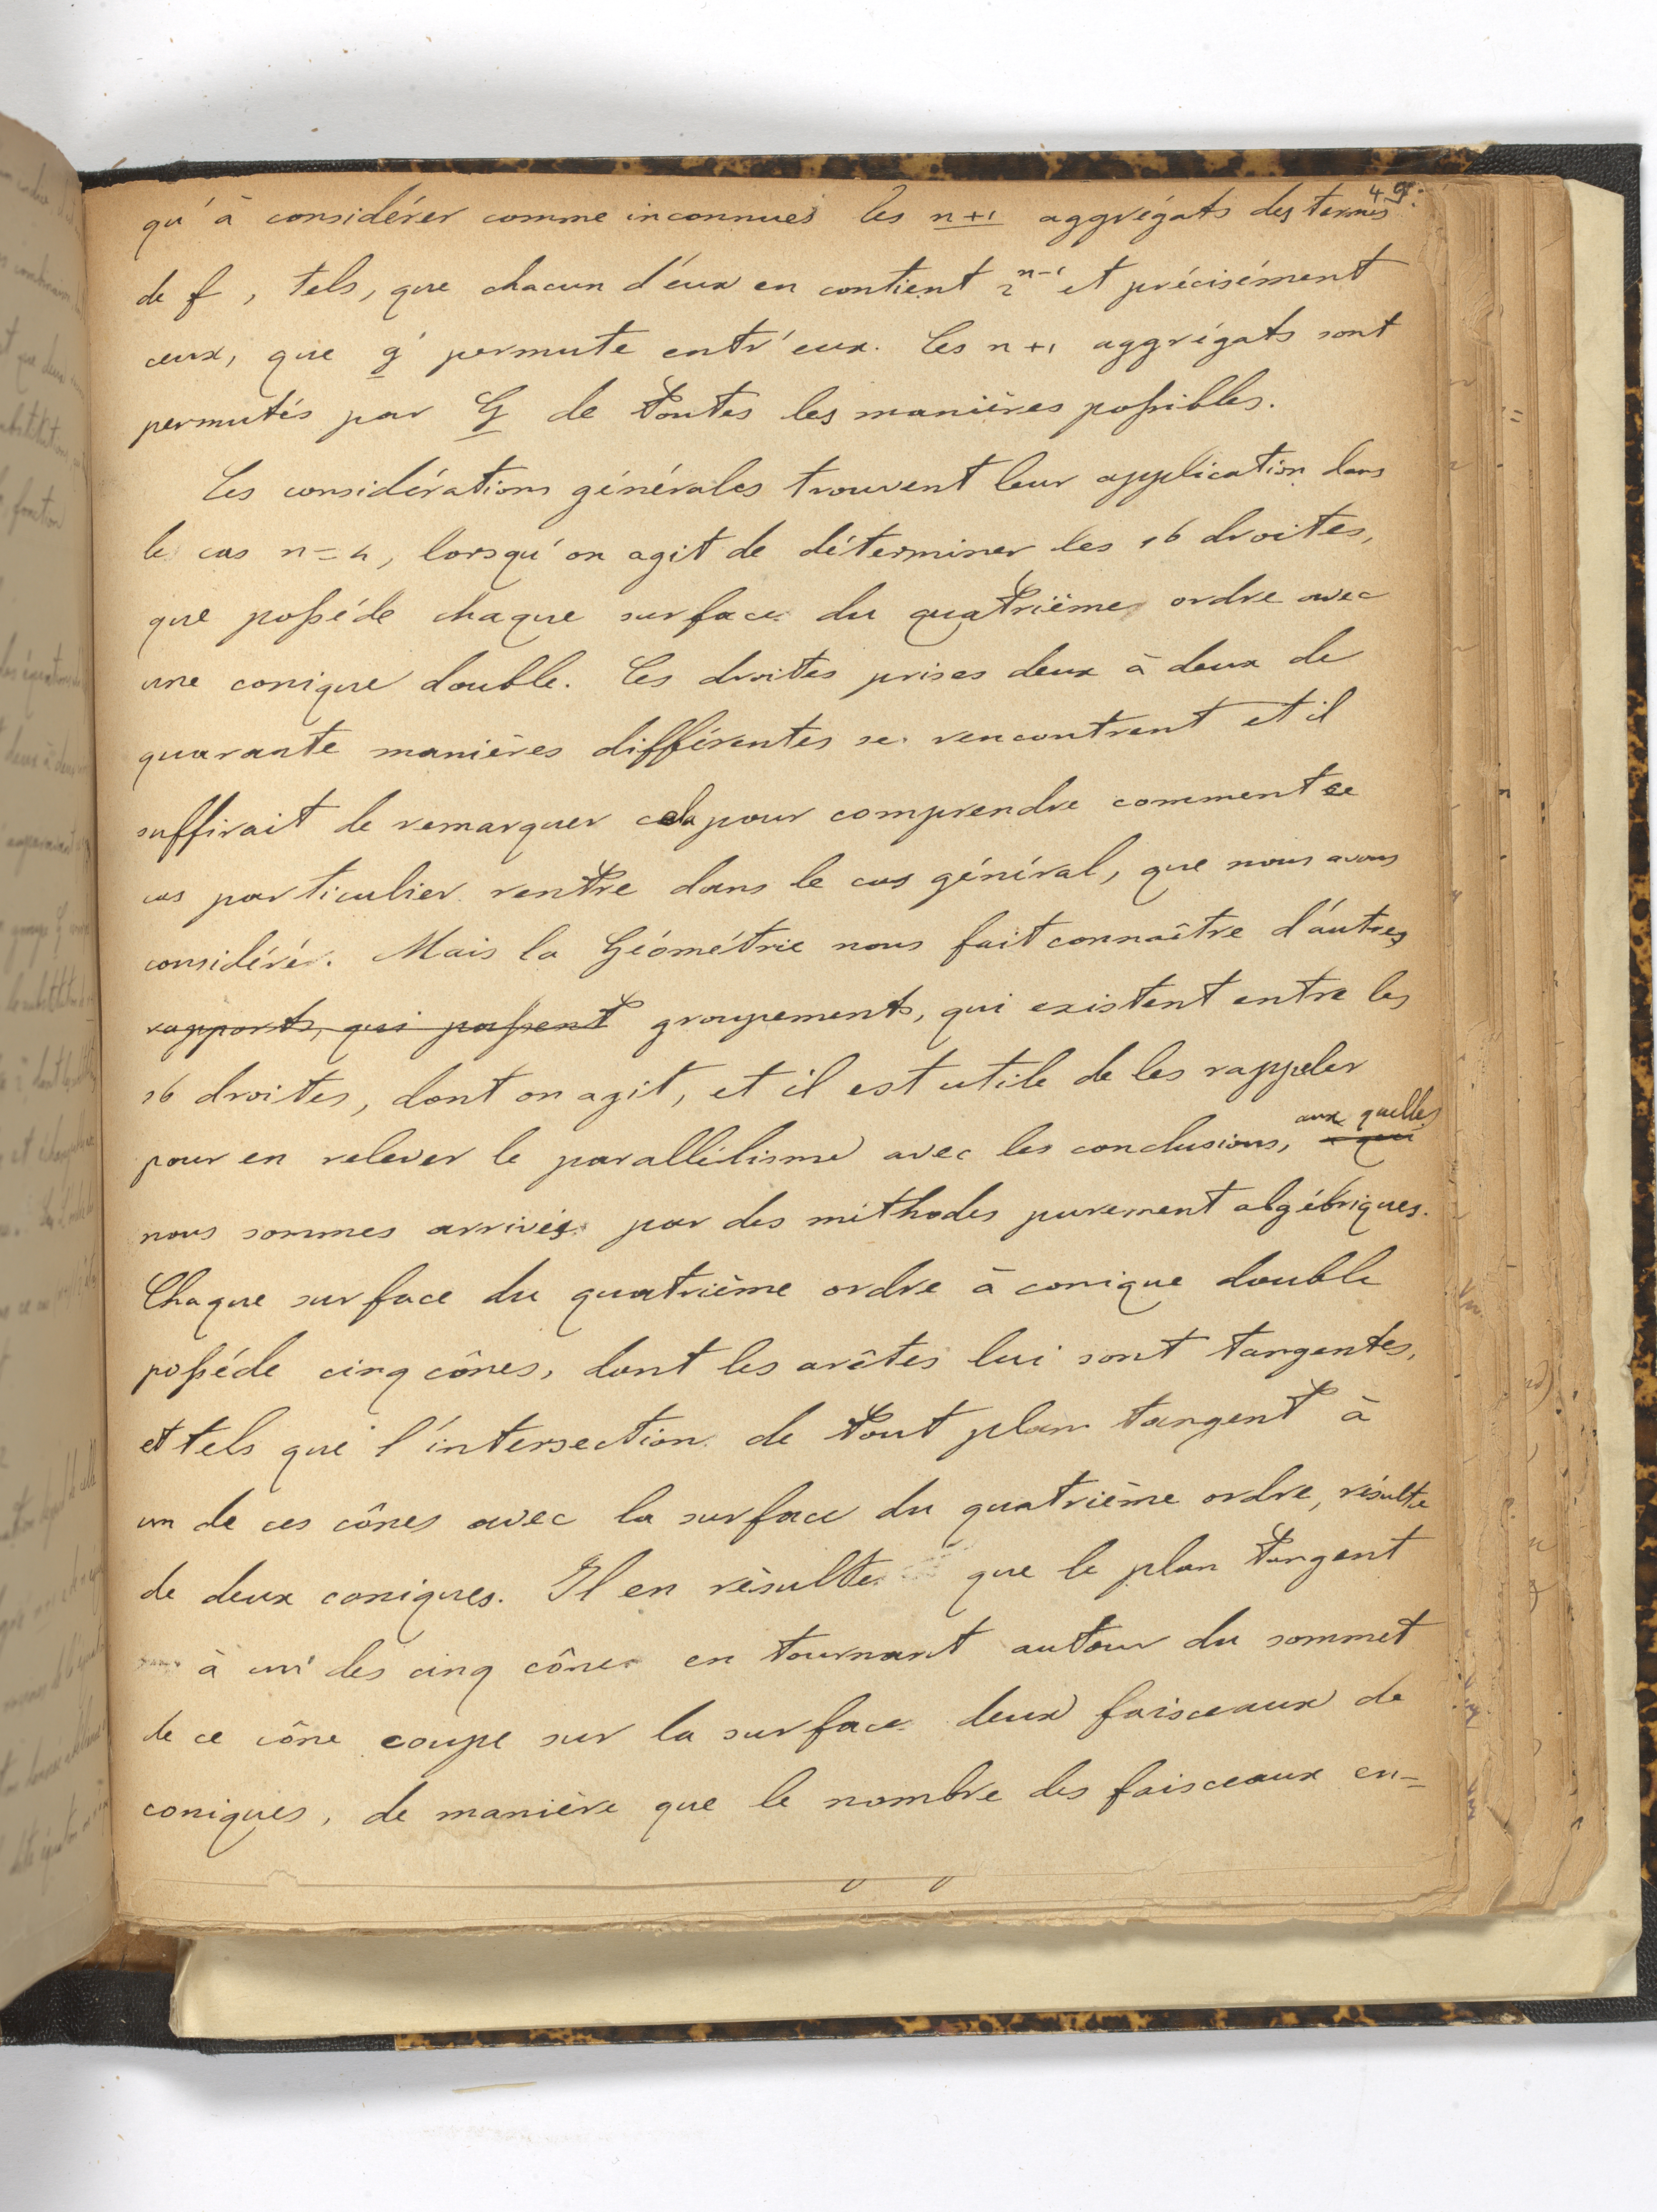 49.
qu'à considérer comme inconnues les n+1 aggrégats des termes
de f, tels, que chacun d'eux en contient 2^{n-1} et précisément
ceux, que g permute entr'eux. Ces n+1 aggrégats sont
permutés par G de toutes les manières possibles.
Ces considérations générales trouvent leur application dans
le cas n=4, lorsqu'on agit de déterminer les 16 droites,
que posséde chaque surface du quatrième ordre avec
une conique double. Ces droites prises deux à deux de
quarante manières différentes se rencontrent et il
suffirait de remarquer cela pour comprendre comment ce
cas particulier rentre dans le cas général, que nous avons
considéré. Mais la Géométrie nous fait connaître d'autres
rapports, qui passent groupements, qui existent entre les
16 droites, dont on agit, et il est utile de les rappeler
pour en relever le parallélisme avec les conclusions, aux quelles
nous sommes arrivés par des méthodes purement algébriques.
Chaque surface du quatrième ordre à conique double
posséde cinq cônes, dont les arêtes lui sont tangentes,
et tels que l'intersection de tout plan tangent à
un de ces cônes avec la surface du quatrième ordre, résulte
de deux coniques. Il en résulte que le plan tangent
à un des cinq cônes en tournant autour du sommet
de ce cône coupe sur la surface deux faisceaux de
coniques, de manière que le nombre des faisceaux en-